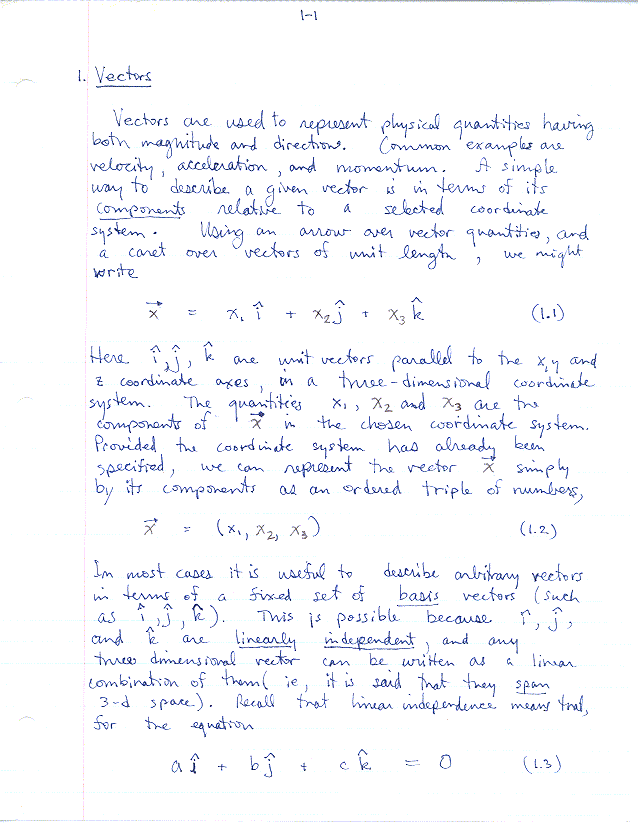 1-1
1. Vectors
Vectors are used to represent physical quantities having
both magnitude and directions. Common examples are
velocity, acceleration, and momentum. A simple
way to describe a given vector is in terms of its
components relative to a selected coordinate
system. Using an arrow over vector quantities, and
a caret over vectors of unit length, we might
write
x⃗ = x₁ î + x₂ ĵ + x₃ k̂ (1.1)
Here î, ĵ, k̂ are unit vectors parallel to the x, y and
z coordinate axes, in a three-dimensional coordinate
system. The quantities x₁, x₂ and x₃ are the
components of x⃗ in the chosen coordinate system.
Provided the coordinate system has already been
specified, we can represent the vector x⃗ simply
by its components as an ordered triple of numbers,
x⃗ = (x₁, x₂, x₃) (1.2)
In most cases it is useful to describe arbitrary vectors
in terms of a fixed set of basis vectors (such
as î, ĵ, k̂). This is possible because î, ĵ,
and k̂ are linearly independent, and any
three dimensional vector can be written as a linear
combination of them (ie, it is said that they span
3-d space). Recall that linear independence means that,
for the equation
a î + b ĵ + c k̂ = 0 (1.3)